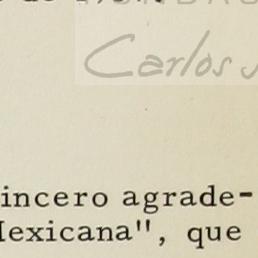 Carlos
incero agrade-
Mexicana", que